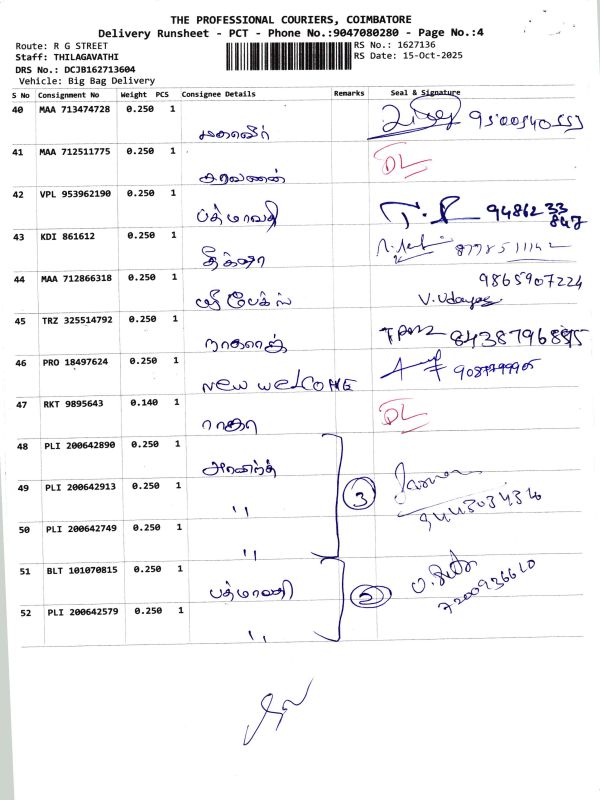 THE PROFESSIONAL COURIERS, COIMBATORE
Delivery Runsheet - PCT - Phone No.:9047080280 - Page No.:4
Route: R G STREET
RS No.: 1627136
Staff: THILAGAVATHI
RS Date: 15-Oct-2025
DRS No.: DCJB162713604
Vehicle: Big Bag Delivery
S No Consignment No Weight PCS Consignee Details Remarks Seal & Signature
40 MAA 713474728 0.250 1
மகாவீர்
41 MAA 712511775 0.250 1
சரவணன் DL
42 VPL 953962190 0.250 1
பத்மாவதி 9486233
847
43 KDI 861612 0.250 1
44 MAA 712866318 0.250 1
9865907224
V. Udaya
45 TRZ 325514792 0.250 1
8438796885
46 PRO 18497624 0.250 1
New WelCOME
47 RKT 9895643 0.140 1
ராகா DL
48 PLI 200642890 0.250 1
49 PLI 200642913 0.250 1
" 3
9443034316
50 PLI 200642749 0.250 1
"
51 BLT 101070815 0.250 1
பத்மாவதி
7200936610
52 PLI 200642579 0.250 1
"